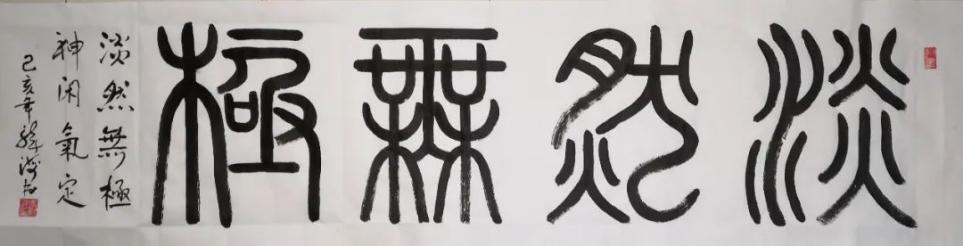 淡然無極
淡然無極
神闲氣定
己亥年